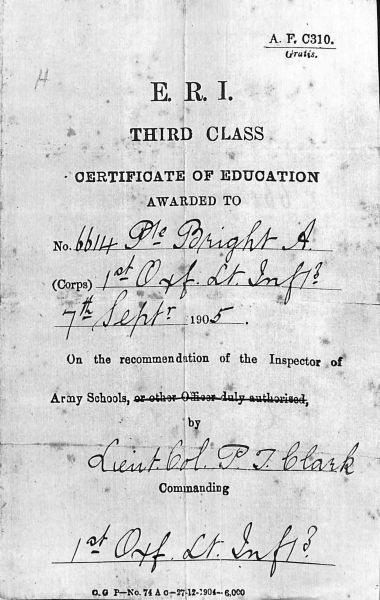 A. F. C310.
Gratis.
H
E. R. I.
THIRD CLASS
CERTIFICATE OF EDUCATION
AWARDED TO
No. 6614 Pte Bright A
(Corps) 1st Oxf. Lt Infy
7th Septr 1905.
On the recommendation of the Inspector of
Army Schools, or other Officer duly authorised,
by
Lieut. Col. P. T. Clark
Commanding
1st Oxf. Lt. Infy
O G P—No. 74 A O—27-12-1904—6,000